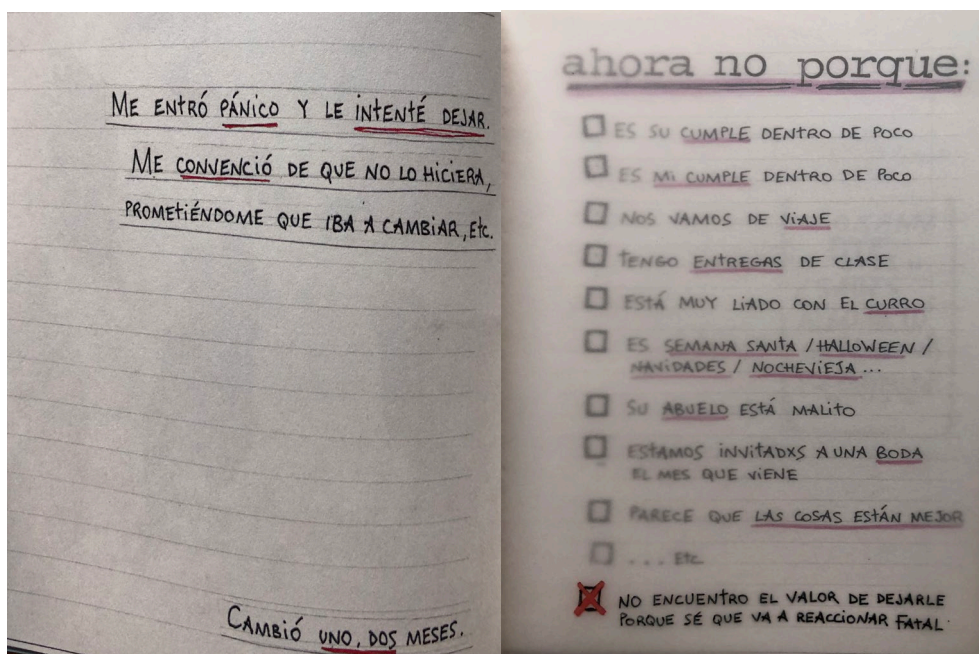 ME ENTRÓ PÁNICO Y LE INTENTÉ DEJAR.
ME CONVENCIÓ DE QUE NO LO HICIERA,
PROMETIÉNDOME QUE IBA A CAMBIAR, Etc.
CAMBIÓ UNO, DOS MESES.
ahora no porque:
ES SU CUMPLE DENTRO DE POCO
ES MI CUMPLE DENTRO DE POCO
NOS VAMOS DE VIAJE
TENGO ENTREGAS DE CLASE
ESTÁ MUY LIADO CON EL CURRO
ES SEMANA SANTA / HALLOWEEN /
NAVIDADES / NOCHEVIEJA ...
SU ABUELO ESTÁ MALITO
ESTAMOS INVITADXS A UNA BODA
EL MES QUE VIENE
PARECE QUE LAS COSAS ESTÁN MEJOR
... Etc.
NO ENCUENTRO EL VALOR DE DEJARLE
PORQUE SÉ QUE VA A REACCIONAR FATAL.